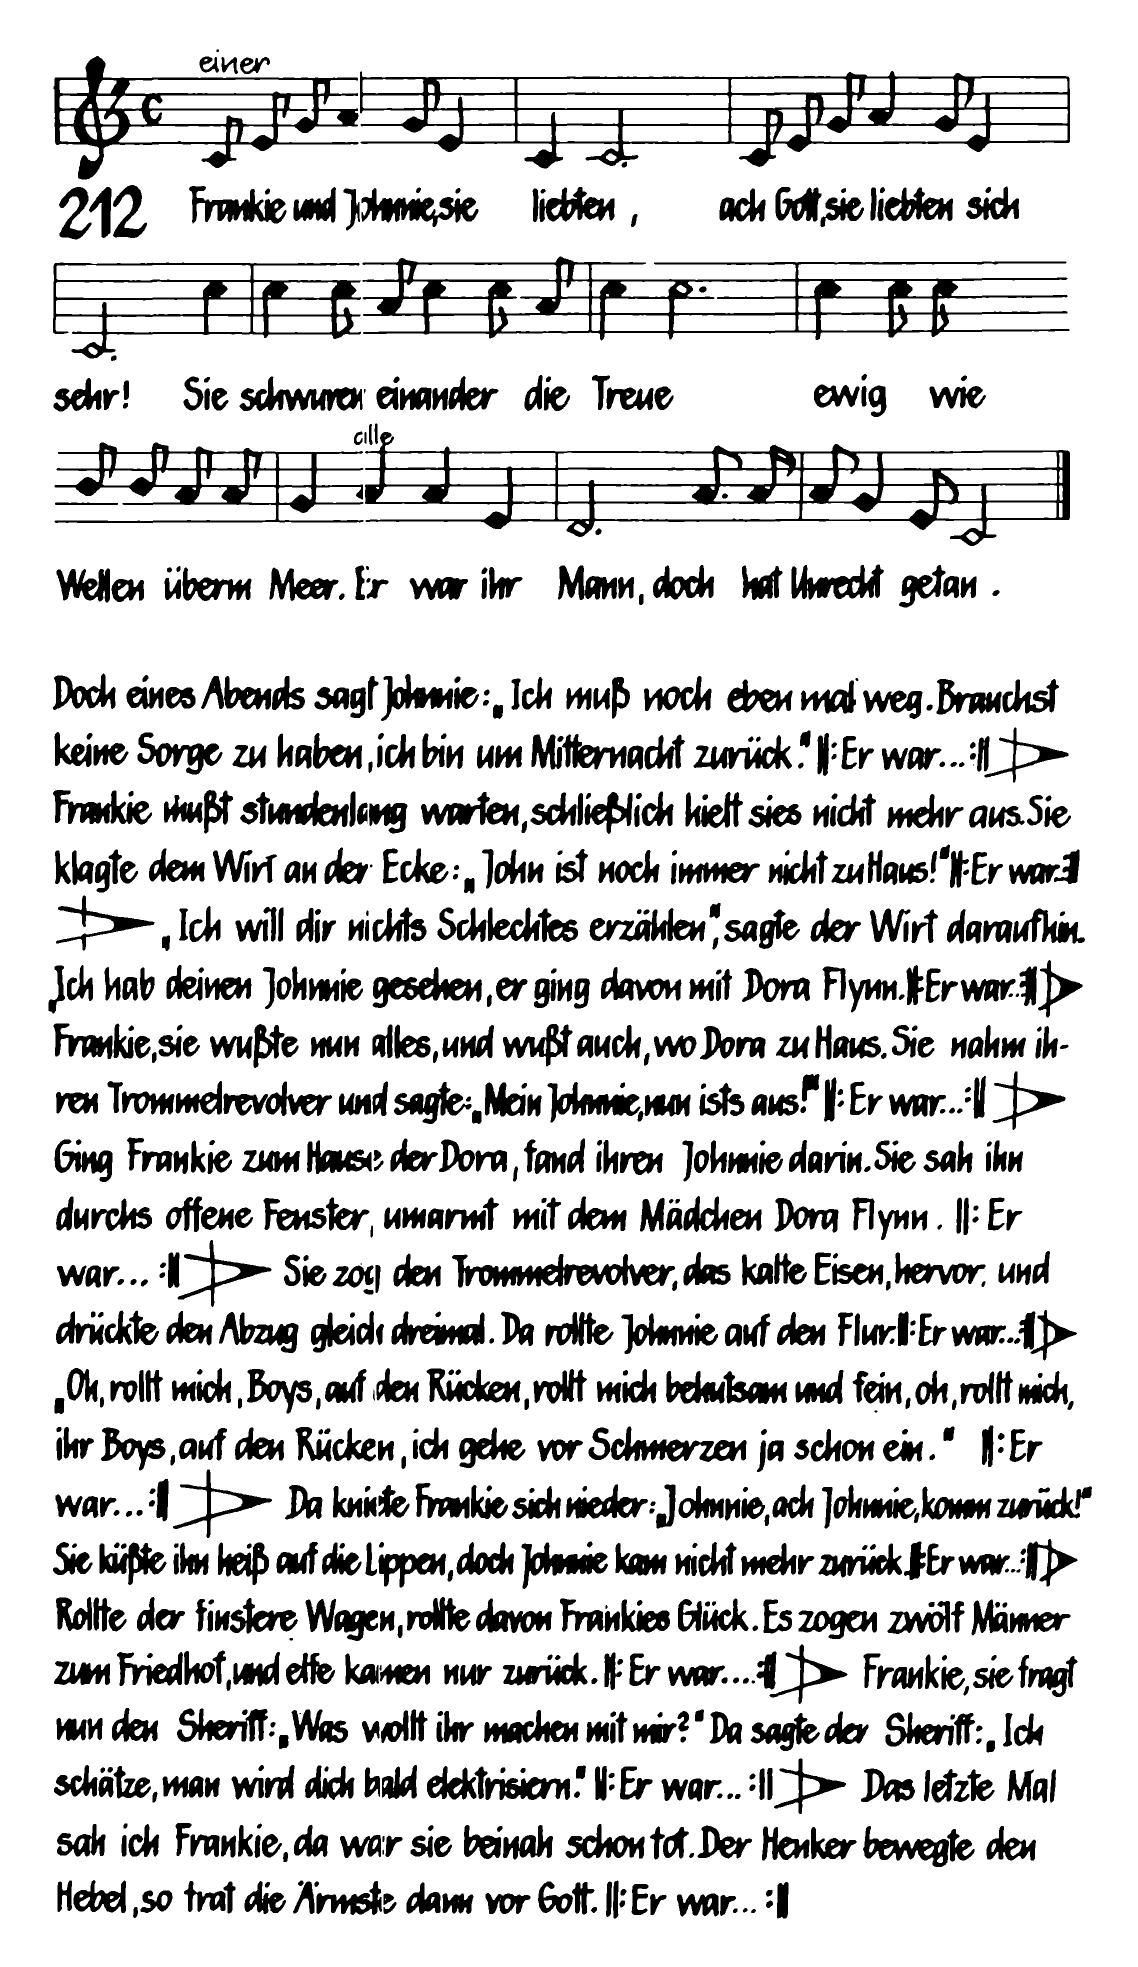 einer
212 Frankie und Johnnie, sie liebten, ach Gott, sie liebten sich
sehr! Sie schwuren einander die Treue ewig wie
alle
Wellen überm Meer. Er war ihr Mann, doch hat Unrecht getan.
Doch eines Abends sagt Johnnie: „Ich muß noch eben mal weg. Brauchst
keine Sorge zu haben, ich bin um Mitternacht zurück." ‖: Er war... :‖
Frankie mußt stundenlang warten, schließlich hielt sies nicht mehr aus. Sie
klagte dem Wirt an der Ecke: „John ist noch immer nicht zu Haus!" ‖: Er war.. :‖
„Ich will dir nichts Schlechtes erzählen", sagte der Wirt daraufhin.
„Ich hab deinen Johnnie gesehen, er ging davon mit Dora Flynn. ‖: Er war... :‖
Frankie, sie wußte nun alles, und wußt auch, wo Dora zu Haus. Sie nahm ih-
ren Trommelrevolver und sagte: „Mein Johnnie, nun ists aus!" ‖: Er war... :‖
Ging Frankie zum Hause der Dora, fand ihren Johnnie darin. Sie sah ihn
durchs offene Fenster, umarmt mit dem Mädchen Dora Flynn. ‖: Er
war... :‖ Sie zog den Trommelrevolver, das kalte Eisen, hervor. und
drückte den Abzug gleich dreimal. Da rollte Johnnie auf den Flur. ‖: Er war... :‖
„Oh, rollt mich, Boys, auf den Rücken, rollt mich behutsam und fein, oh, rollt mich,
ihr Boys, auf den Rücken, ich gehe vor Schmerzen ja schon ein." ‖: Er
war... :‖ Da kniete Frankie sich nieder: „Johnnie, ach Johnnie, komm zurück!"
Sie küßte ihn heiß auf die Lippen, doch Johnnie kam nicht mehr zurück. ‖: Er war... :‖
Rollte der finstere Wagen, rollte davon Frankies Glück. Es zogen zwölf Männer
zum Friedhof, und elfe kamen nur zurück. ‖: Er war.... :‖ Frankie, sie fragt
nun den Sheriff: „Was wollt ihr machen mit mir?" Da sagte der Sheriff: „Ich
schätze, man wird dich bald elektrisiern." ‖: Er war... :‖ Das letzte Mal
sah ich Frankie, da war sie beinah schon tot. Der Henker bewegte den
Hebel, so trat die Ärmste dann vor Gott. ‖: Er war... :‖